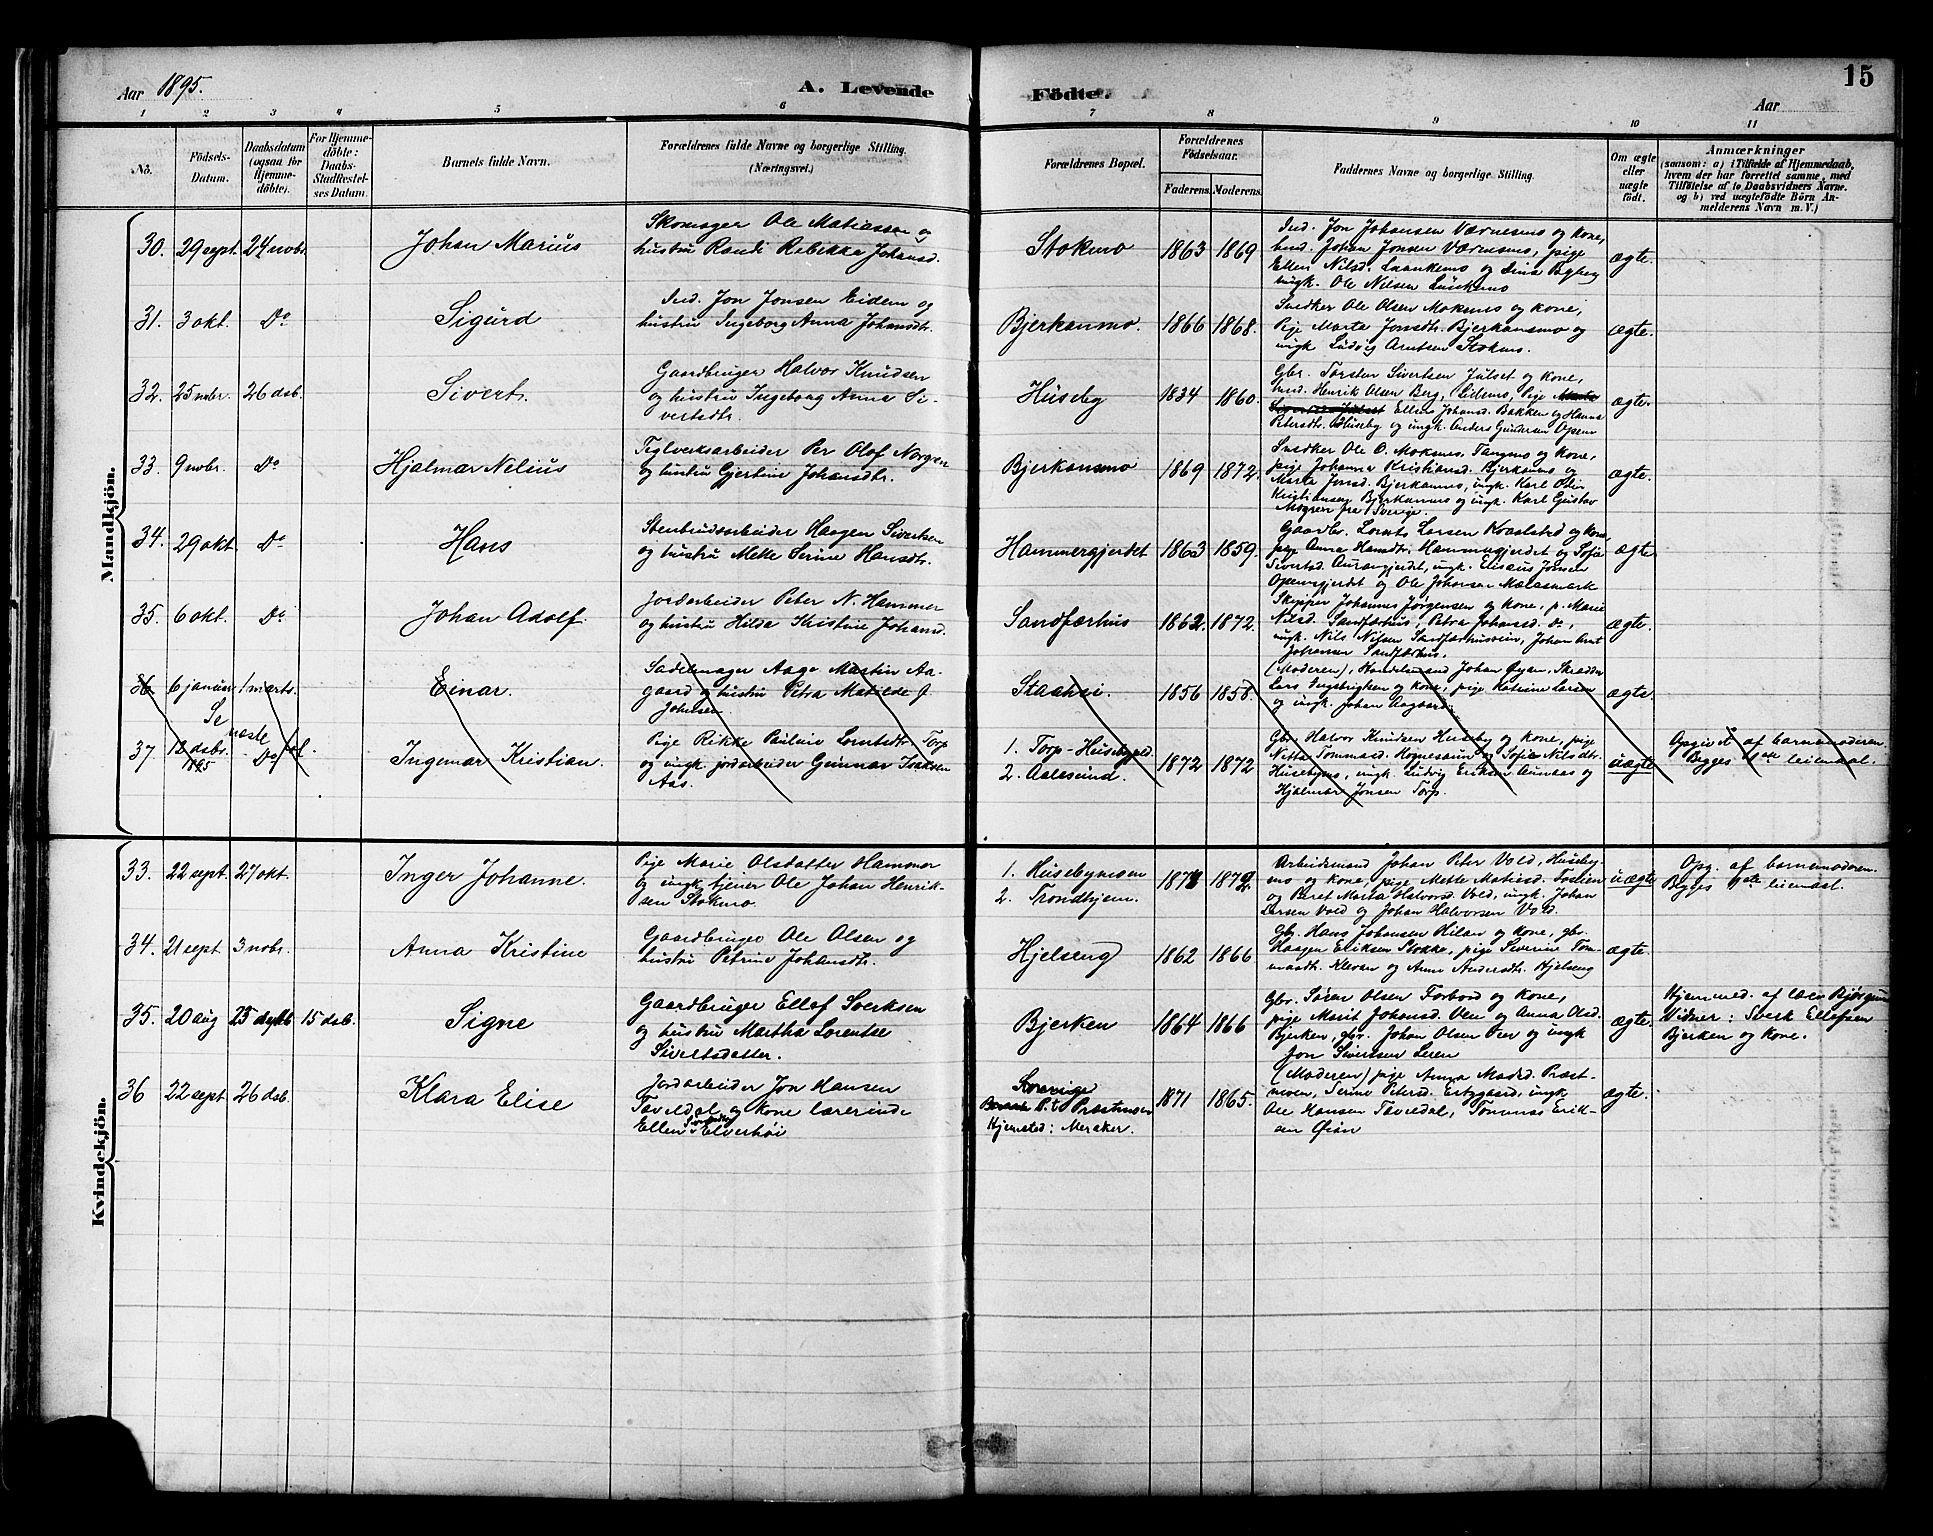 15
Aar 1895.
A. Levende Fødte.
Aar
1 2 3 4 5 6 7 8 9 10 11
No.
Fødsels-
Datum.
Daabsdatum
(ogsaa for
Hjemme-
døbte).
For Hjemme-
døbte:
Daabs-
Stadfæstel-
ses Datum.
Barnets fulde Navn.
Forældrenes fulde Navne og borgerlige Stilling.
(Næringsvei.)
Forældrenes Bopæl.
Forældrenes
Fødselsaar.
Faderens. Moderens.
Faddernes Navne og borgerlige Stilling.
Om ægte
eller
uægte
født.
Anmærkninger
(saasom: a) i Tilfælde af Hjemmedaab,
hvem der har forrettet samme, med
Tilføielse af to Daabsvidners Navne.
og b) ved uægtefødte Børn An-
melderens Navn m. V.)
Mandkjøn.
30. 29 sept. 24 novbr. Johan Marius
Skomager Ole Matiassen og
hustru Randi Rebikka Johansd.
Stokmo 1863 1869
Ind. Jon Johansen Værnesmo og kone,
Ind. Johan Jonsen Værnesmo, pige
Ellen Nilsd. og
ungk. Ole Nilsen
ægte.
31. 3 okt. Do Sigurd
Ind. Jon Jonsen Eidem og
hustru Ingeborg Anna Johansdtr.
Bjerkanmo. 1866 1868.
Snedker Ole Olsen Moksnes og kone,
Pige Marta Jonsdtr. Bjerkansmo og
ungk. Ludvig Arntsen Stokmo.
ægte.
32. 25 novbr. 26 dsb. Sivert.
Gaardbruger Halvor Knudsen
og hustru Ingeborg Anna Si-
vertsdtr.
Huseby 1834 1860.
Gbr. Torsten Sivertsen Julset og kone,
Ind. Henrik Olsen Berg, Eidemo, Pige
Ellen Johansd. Bakken og Hanna
Petersdtr. Huseby og ungk. Anders Gundersen Opem
ægte.
33. 9 novbr. Do Hjalmar Nelius
Teglverksarbeider Per Olof Norgren
og hustru Gjertine Johansdtr.
Bjerkansmo 1869 1872.
Snedker Ole O. Moksnes Tangmo og kone,
pige Johanna Kristiansd. Bjerkanmo og
Marta Jonsd. Bjerkanmo, ungk. Karl Odin
Kristiansen Bjerkanmo og ungk. Karl Gustav
Mogren fra Sverige.
ægte.
34. 29 okt. Do Hans
Stenbrudsarbeider Haagen Sivertsen
og hustru Mette Serine Hansdtr.
Hammergjerdet 1863 1859.
Gaardbr. Lornts Larsen og kone,
pige Anna Hansdtr. Hammergjerdet og Sofie
Sivertsd. Aurangjerdet, ungk. Elisæus Jonsen
Opemsgjerdet og Ole Johansen Mælasmark
ægte.
35. 6 okt. Do Johan Adolf.
Jordarbeider Peter N. Hammer
og hustru Hilda Kristine Johansd.
Sandfærhus 1862. 1872.
Skipper Johannes Jørgensen og kone, p. Marie
Nilsd. Sandfærhus, Petra Johansd. do,
ungk. Nils Nilsen Sandfærhusveien, Johan Arnt
Johansen Sandfærhus.
ægte.
36 6 januar 1 marts. Einar.
Sadelmager Aage Martin Aa-
gaard og hustru Petra Matilde J.
Johnsen
1856 1858
(Moderen), Handelsmand Johan Øyan, Skrædder
Lars Ingebrigtsen og kone, pige Katrine Larsen
og ungk. Johan Aagaard.
ægte.
Se næste
37. 12 dsbr. 1895 Do Ingemar Kristian.
Pige Rikke Pauline Lorntsdtr. Torp
og ungk. jordarbeider Gunnar Isaksen
Aas.
1. Torp-Husebypld.
2. Aalesund.
1872 1872
Gbr. Halvor Knudsen Huseby og kone, pige
Netta Tommasd. Hognesaun og Sofie Nilsdtr.
Husebymo, ungk. Ludvig Eriksen Aunaas og
Hjalmar Jonsen Torp.
uægte
Opgivet af barnemoderen.
Begges 1ste leiemaal.
Kvindekjøn.
33. 22 sept. 27 okt. Inger Johanne.
Pige Marie Olsdatter Hammer
og ungk. tjener Ole Johan Henrik-
sen Stokmo.
1. Husebymoen
2. Trondhjem.
1871 1872
Arbeidsmand Johan Peter Vold, Huseby-
mo og kone, pige Mette Matiasd. Toslien
og Beret Marta Halvorsd. Vold, ungk. Johan
Larsen Vold og Johan Halvorsen Vold.
uægte
Opg. af barnemoderen.
Begges 1ste leiemaal.
34. 21 sept 3 nobr. Anna Kristine
Gaardbruger Ole Olsen og
hustru Petrine Johansdtr.
Hjelseng 1862 1866
Gbr. Hans Johansen Hilan og kone, gbr.
Haagen Eriksen Stokke, pige Siverine Tom-
masdtr. Klevan og Anne Andersdtr. Hjelseng
ægte.
35. 20 aug 25 dsbr. 15 dsb. Signe
Gaardbruger Ellef Sverksen
og hustru Martha Lorentse
Sivertsdatter.
Bjerken 1864 1866
Gbr. Søren Olsen Forbord og kone,
pige Marit Johansd. Ven og Anna Olsd.
Bjerken, gbr. Johan Olsen Ven og ungk
Jon Sivertsen Leren
ægte.
Hjemmed. af lærer Bjørgum
Vidner: Sverk Ellefsen
Bjerken og kone.
36 22 sept 26 dsb. Klara Elise
Jordarbeider Jon Hansen
Teveldal og kone lærerinde
Ellen Elverhøi
P.t Præstmoen
Hjemsted: Meraker.
1871 1865.
(Moderen) pige Anna Madsd. Præst-
moen, Serine Petersd. Erbygaard, ungk
Ole Hansen Tevedal, Tommas Erik-
sen Øian
ægte.